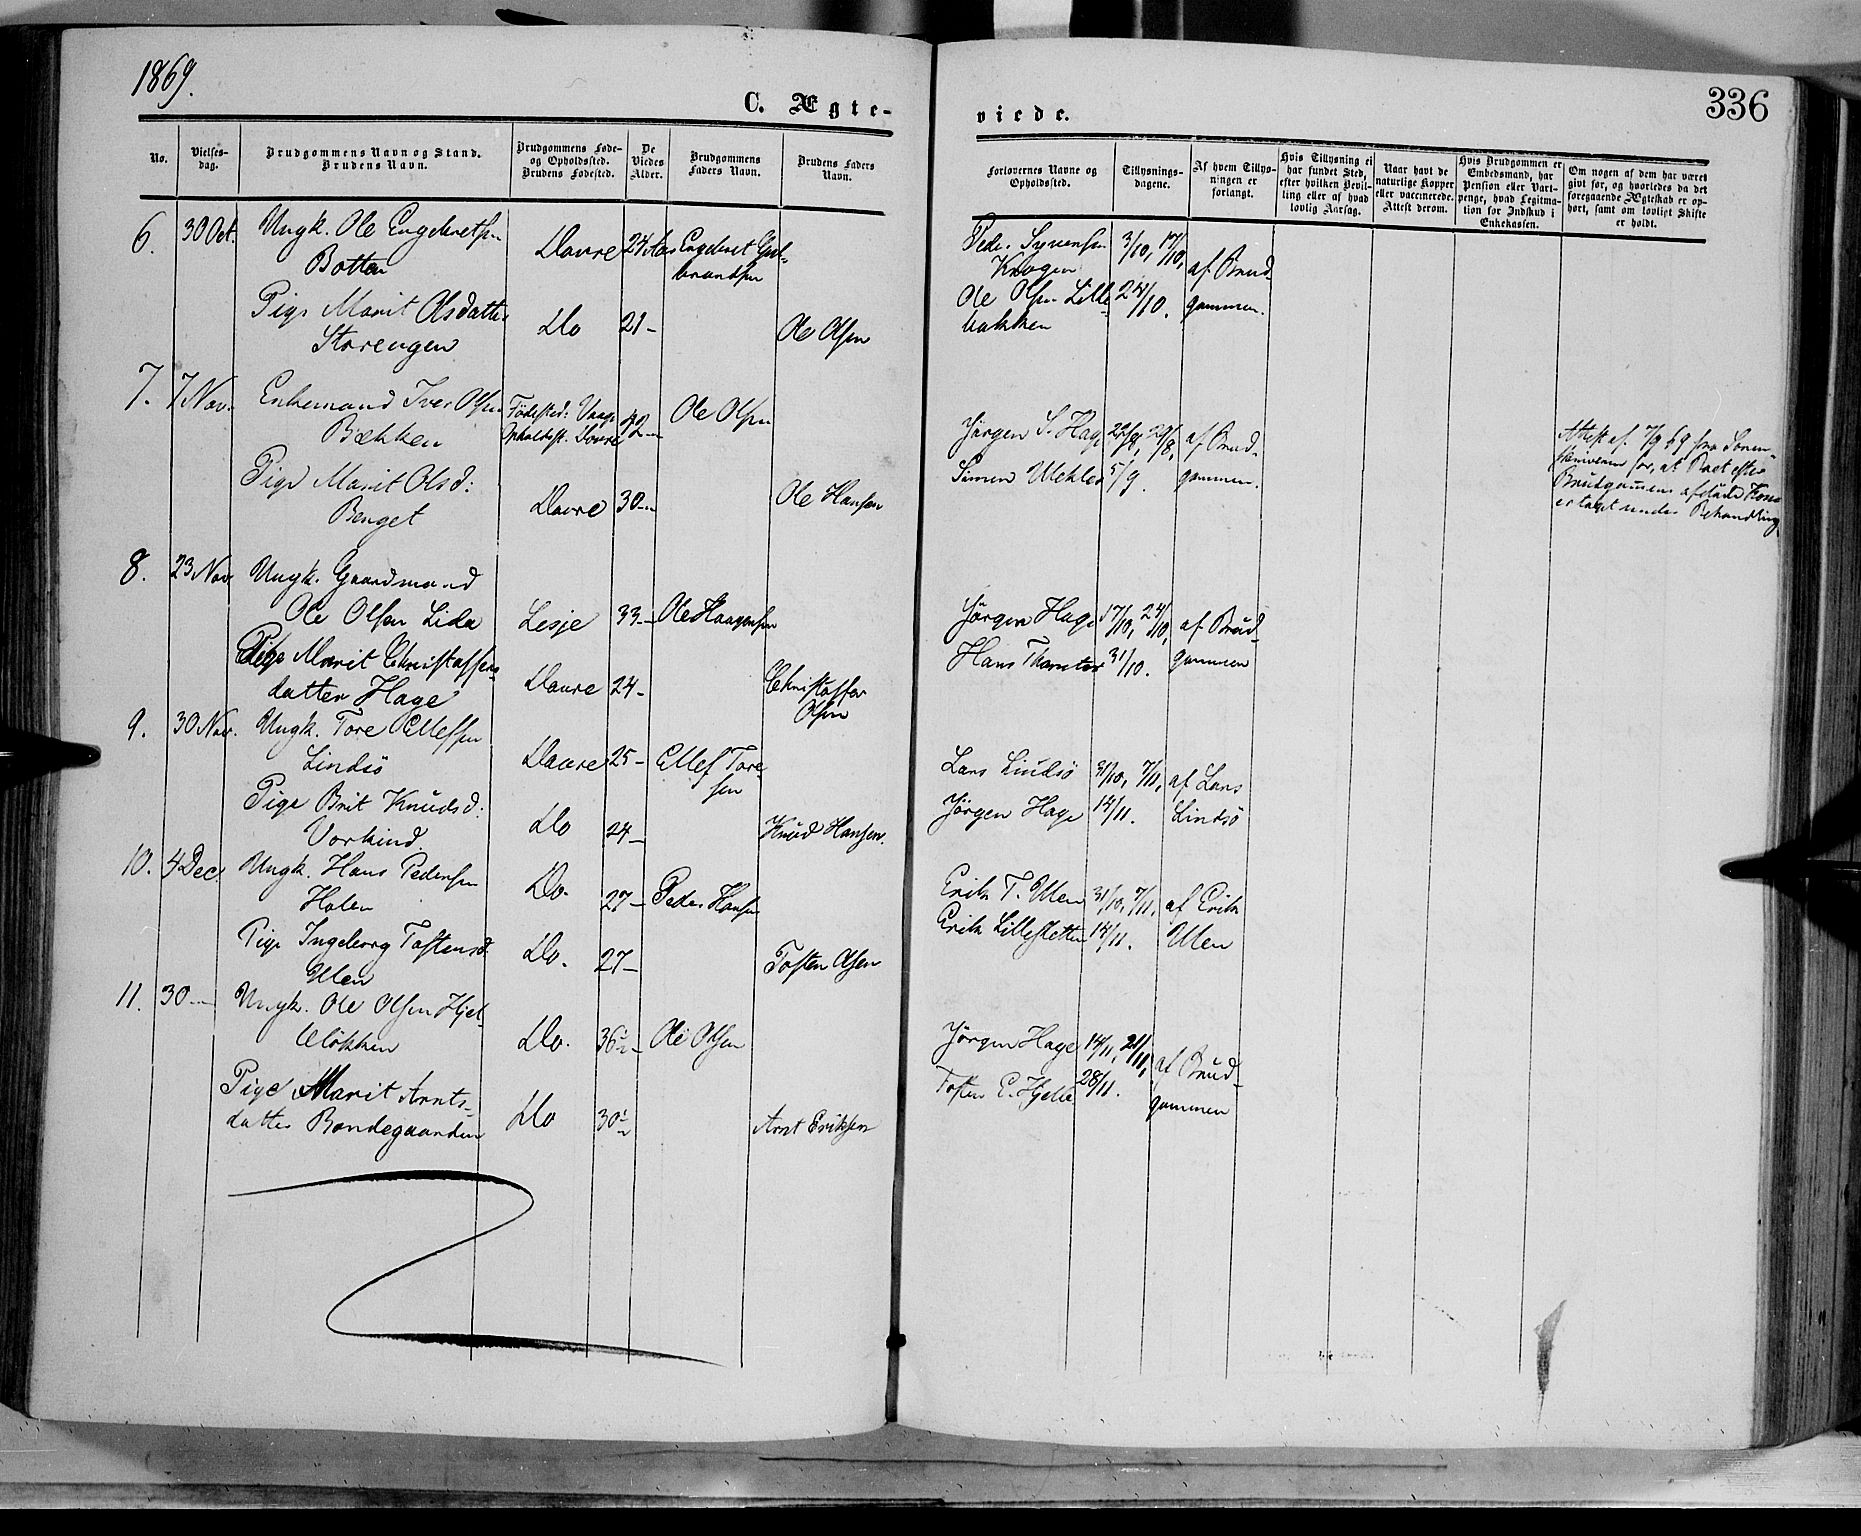 1869.
C. Ægte-
viede.
336
No.
Vielses-
dag.
Brudgommens Navn og Stand.
Brudens Navn.
Brudgommens Føde-
og Opholdsted.
Brudens Fødested.
De
Viedes
Alder.
Brudgommens
Faders Navn.
Brudens Faders
Navn.
Forlovernes Navne og
Opholdsted.
Tillysnings-
dagene.
Af hvem Tillys-
ningen er
forlangt.
Hvis Tillysning ei
har fundet Sted,
efter hvilken Bevil-
ling eller af hvad
lovlig Aarsag.
Naar havt de
naturlige Kopper
eller vaccinerede.
Attest derom.
Hvis Brudgommen er
Embedsmand, har
Pension eller Vart-
penge, hvad Legitma-
tion for Indskud i
Enkekassen.
Om nogen af dem har været
givt før, og hvorledes da det
foregaaende Ægteskab er op-
hørt, samt om lovligt Skifte
er holdt.
6. 30 Oct. Ungk. Ole Engebretsen Dovre 24 Aar Engebret Gul- Peder Syversen 3/10, 17/10,
Botten brandsen Krogen af Brud-
Pige Marit Olsdatter Do 21- Ole Olsen Ole Olsen Lille- 24/10. gommen.
Storengen bakken
7. 7 Nov. Enkemand Iver Olsen Fødested: Vaage 42- Ole Olsen Jörgen S. Hage 22/8, 29/8, af Brud-
Bækken Opholdst. Dovre
Pige Marit Olsd: Dovre 30- Ole Hansen Simen 5/9. gommen.
Benget
Attest af 7/9 69 fra Soren-
skriveren for, at Boet efter
Brudgommens afdøde Kone
er taget under Behandling
8. 23 Nov. Ungk. Gaardmand
Ole Olsen Lida Lesje 33- Ole Haagensen Jörgen Hage 17/10, 24/10, af Brud-
Pige Marit Christoffers- Hans 31/10. gommen
datter Hage Dovre 24- Christoffer
Olsen
9. 30 Nov. Ungk. Tore Ellefsen
Lindsö Dovre 25- Ellef Tore- Lars Lindsö 31/10, 7/11, af Lars
sen
Pige Brit Knudsd: Do 24- Knud Hansen. Jörgen Hage 14/11. Lindsö
Vorkind.
10. 4 Dec. Ungk. Hans Pedersen Do. 27- Peder Hansen Erik T. Ulen 31/10, 7/11, af Erik
Holen
Pige Ingeborg Tostensd. Do. 27- Tosten Olsen Erik Lillesletten 14/11. Ulen
Ulen
11. 30- Ungk. Ole Olsen Hjel-
lökken Do. 36½- Ole Olsen Jörgen Hage 14/11, 21/11, af Brud-
Pige Marit Arnts- Tosten E. Hjelle 28/11. gommen
datter Bondegaarden Do 30½ Arnt Eriksen